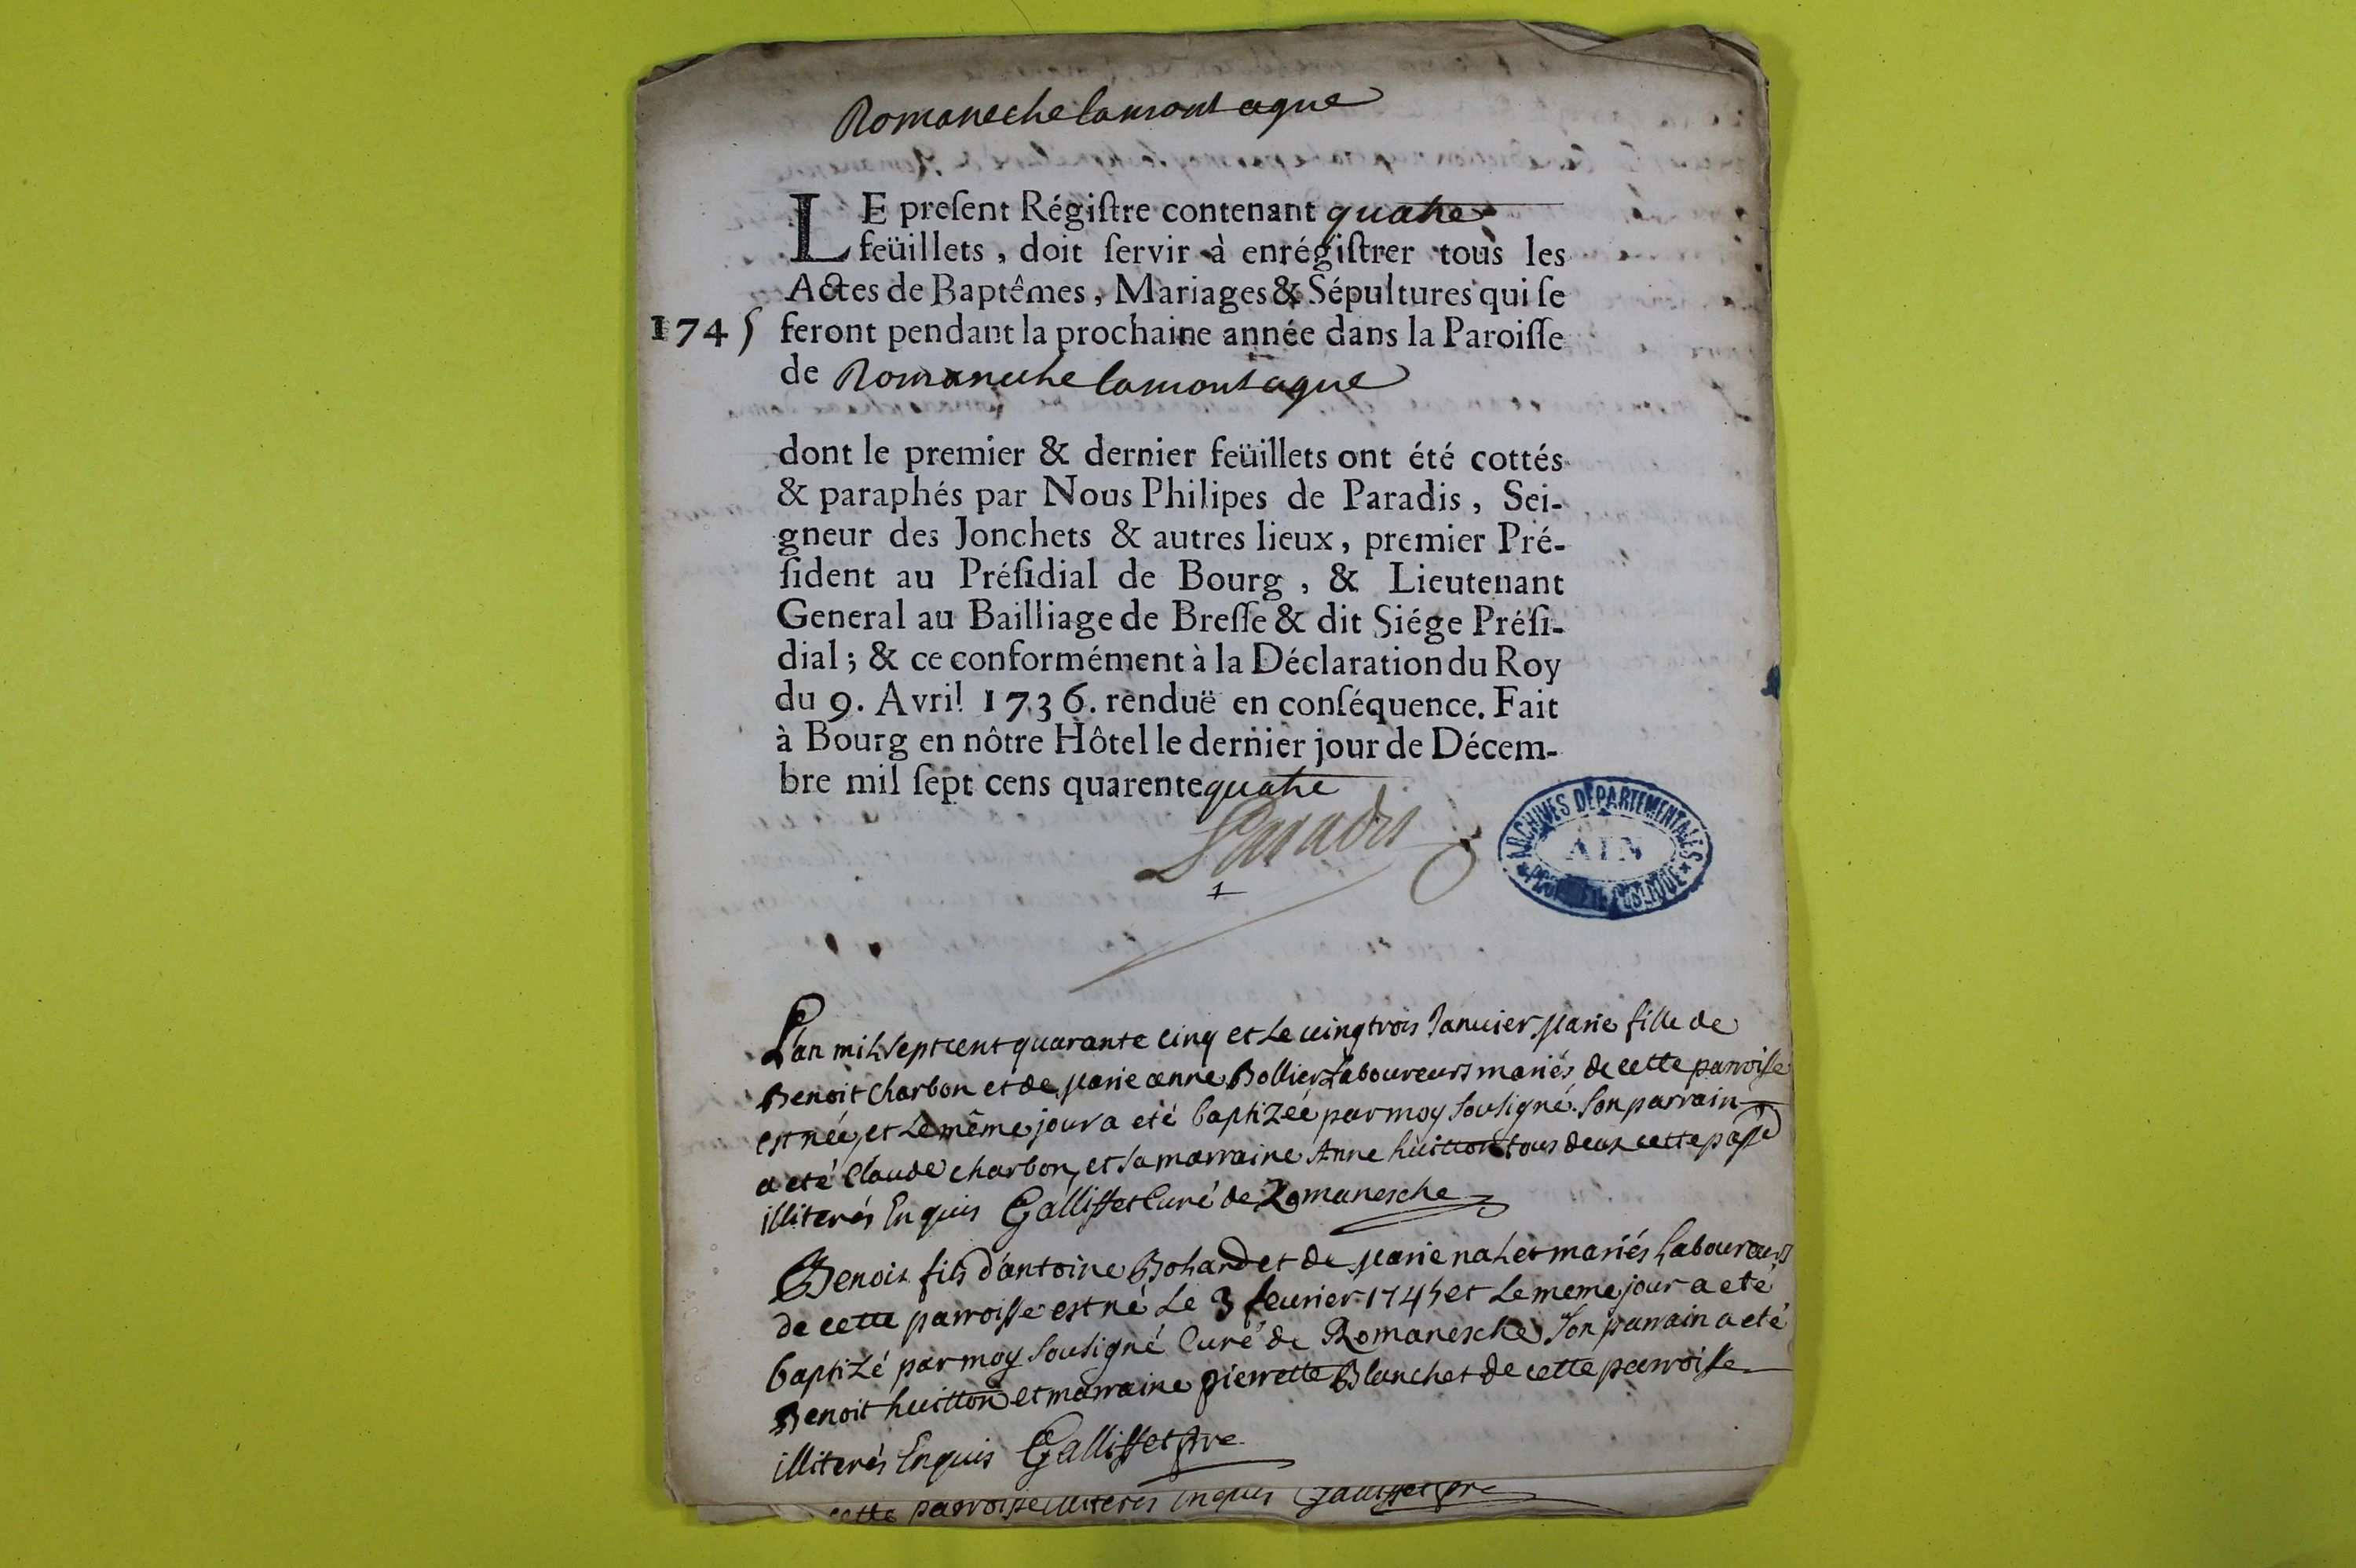 Romaneche lamontagne
LE preſent Régiſtre contenant quatre
feüillets, doit ſervir à enrégiſtrer tous les
Actes de Baptêmes, Mariages & Sépultures qui ſe
1745 feront pendant la prochaine année dans la Paroiſſe
de Romaneche lamontagne
dont le premier & dernier feüillets ont été cottés
& paraphés par Nous Philipes de Paradis, Sei-
gneur des Jonchets & autres lieux, premier Pré-
ſident au Préſidial de Bourg, & Lieutenant
General au Bailliage de Breſſe & dit Siége Préſi-
dial; & ce conformément à la Déclaration du Roy
du 9. Avril 1736. renduë en conſéquence. Fait
à Bourg en nôtre Hôtel le dernier jour de Décem-
bre mil ſept cens quarente quatre
Paradis
1
ARCHIVES DÉPARTEMENTALES
AIN
L'an mil sept cent quarante cinq et Le vingtrois Janvier Marie fille de
Benoit Charbon et de Marie anne Bollier Laboureurs mariés de cette parroisse
est née, et Le même jour a eté baptizée par moy Sousigné. Son parrain
a eté Claude charbon, et sa marraine Anne huitton tous deux cette passe
illiterés Enquis Galliffet Curé de Romanesche
Benoit fils d'antoine Bohard et de Marie nalet mariés Laboureurs
de cette parroisse est né Le 3 feurier 1745 et Le meme jour a eté
baptizé par moy Sousigné Curé de Romanesche Son parrain a eté
Benoit huitton et marraine pierrette Blanchet de cette parroisse
illiterés Enquis Galliffet pre
cette parroisse illiterés Enquis Galliffet pre